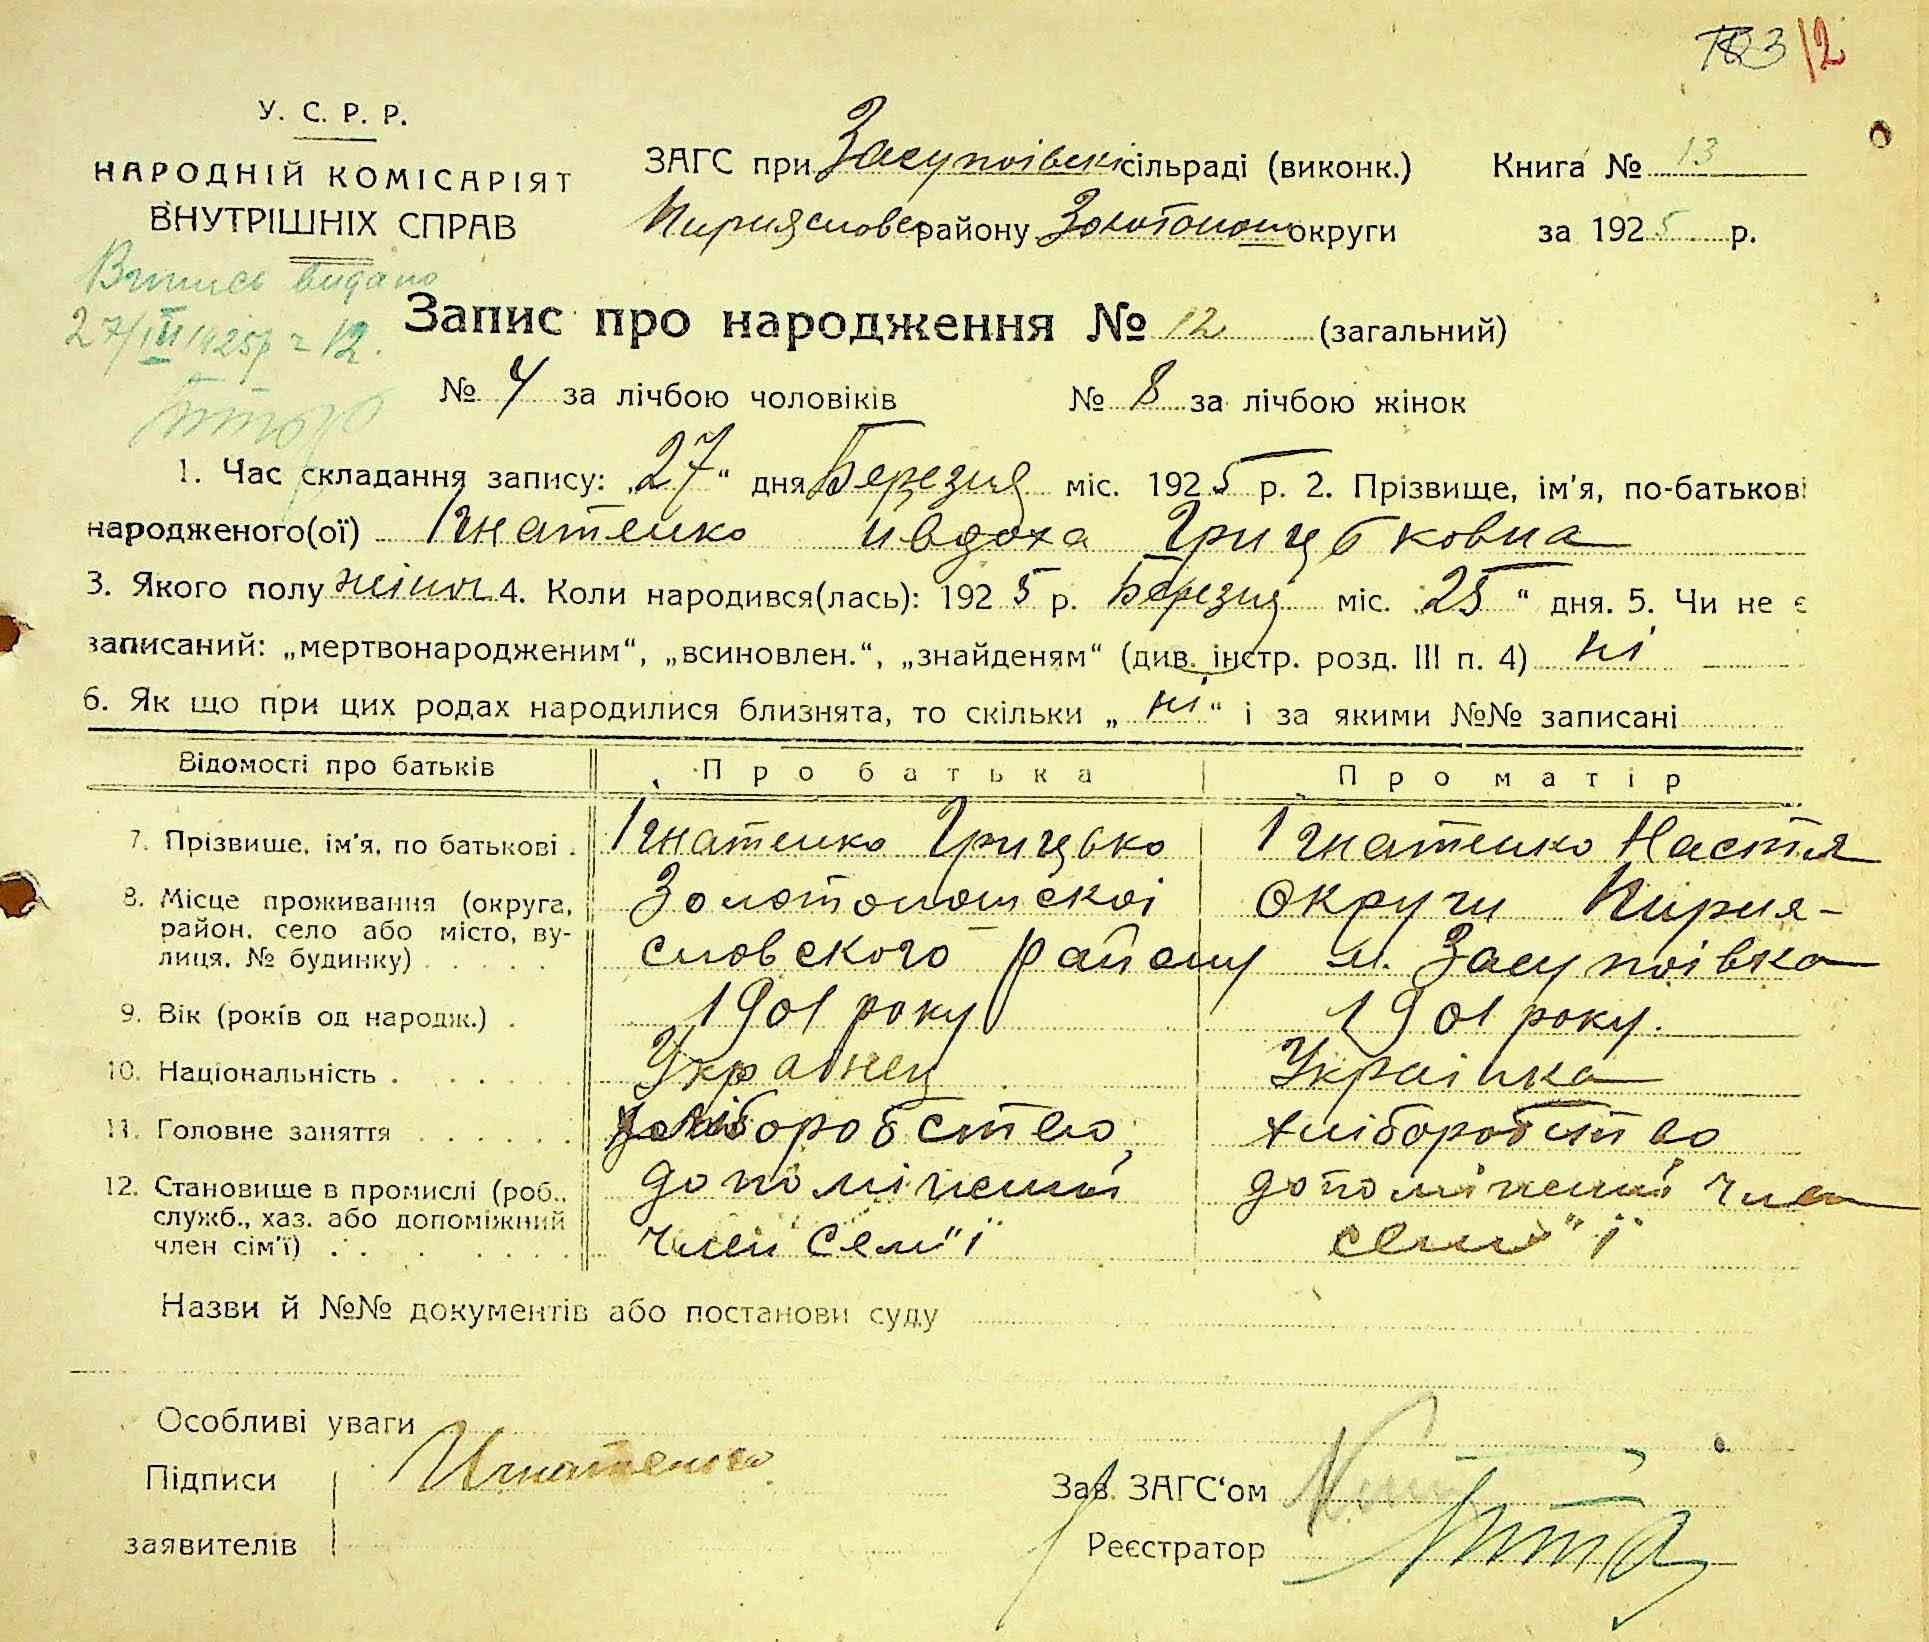 У. С. Р. Р.
НАРОДНІЙ КОМІСАРІЯТ
ВНУТРІШНІХ СПРАВ
12
ЗАГС при Засупоівскі сільраді (виконк.) Книга № 13
району Золотонош округи за 1925 р.
видано
27/III 1925р 12.
Запис про народження № 12 (загальний)
№ 4 за лічбою чоловіків № 8 за лічбою жінок
1. Час складання запису: „27“ дня Березня міс. 1925 р. 2. Прізвище, ім'я, по-батькові
народженого(ої) Ігнатенко Ивдоха Грицьковна
3. Якого полу жіноч 4. Коли народився(лась): 1925 р. Березня міс. 25“ дня. 5. Чи не є
записаний: „мертвонародженим“, „всиновлен.“, „знайденям“ (див. інстр. розд. III п. 4) ні
6. Як що при цих родах народилися близнята, то скільки „ні“ і за якими №№ записані
Відомості про батьків Про батька Про матір
7. Прізвище, ім'я, по батькові . Ігнатенко Грицько Ігнатенко Настя
8. Місце проживання (округа, район, село або місто, ву-лиця, № будинку) . . . . . Золотоношскоі округи Пирия-
словского району м. Засупоівка
9. Вік (років од народж.) . 1901 року 1901 року.
10. Національність . . . . . . Украінец Украінка
11. Головне заняття . . . . . . хліборобство хліборобство
12. Становище в промислі (роб., служб., хаз. або допоміжний член сім'ї) . . . . . . . допоміжний допоміжний член
член сем"ї сем"ї
Назви й №№ документів або постанови суду
Особливі уваги
Підписи Игнатенко
заявителів
Зав. ЗАГС'ом
Реєстратор